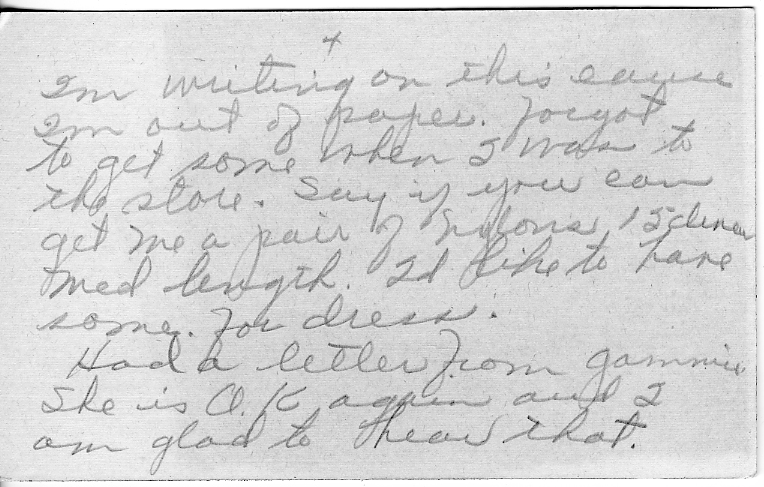 +
Im writing on this cause
Im out of paper. Forgot
to get some when I was to
the store. Say if you can
get me a pair of Nylons, 15 denier
med length. Id like to have
some. For dress.
Had a letter from gammie
She is O.K again and I
am glad to hear that.